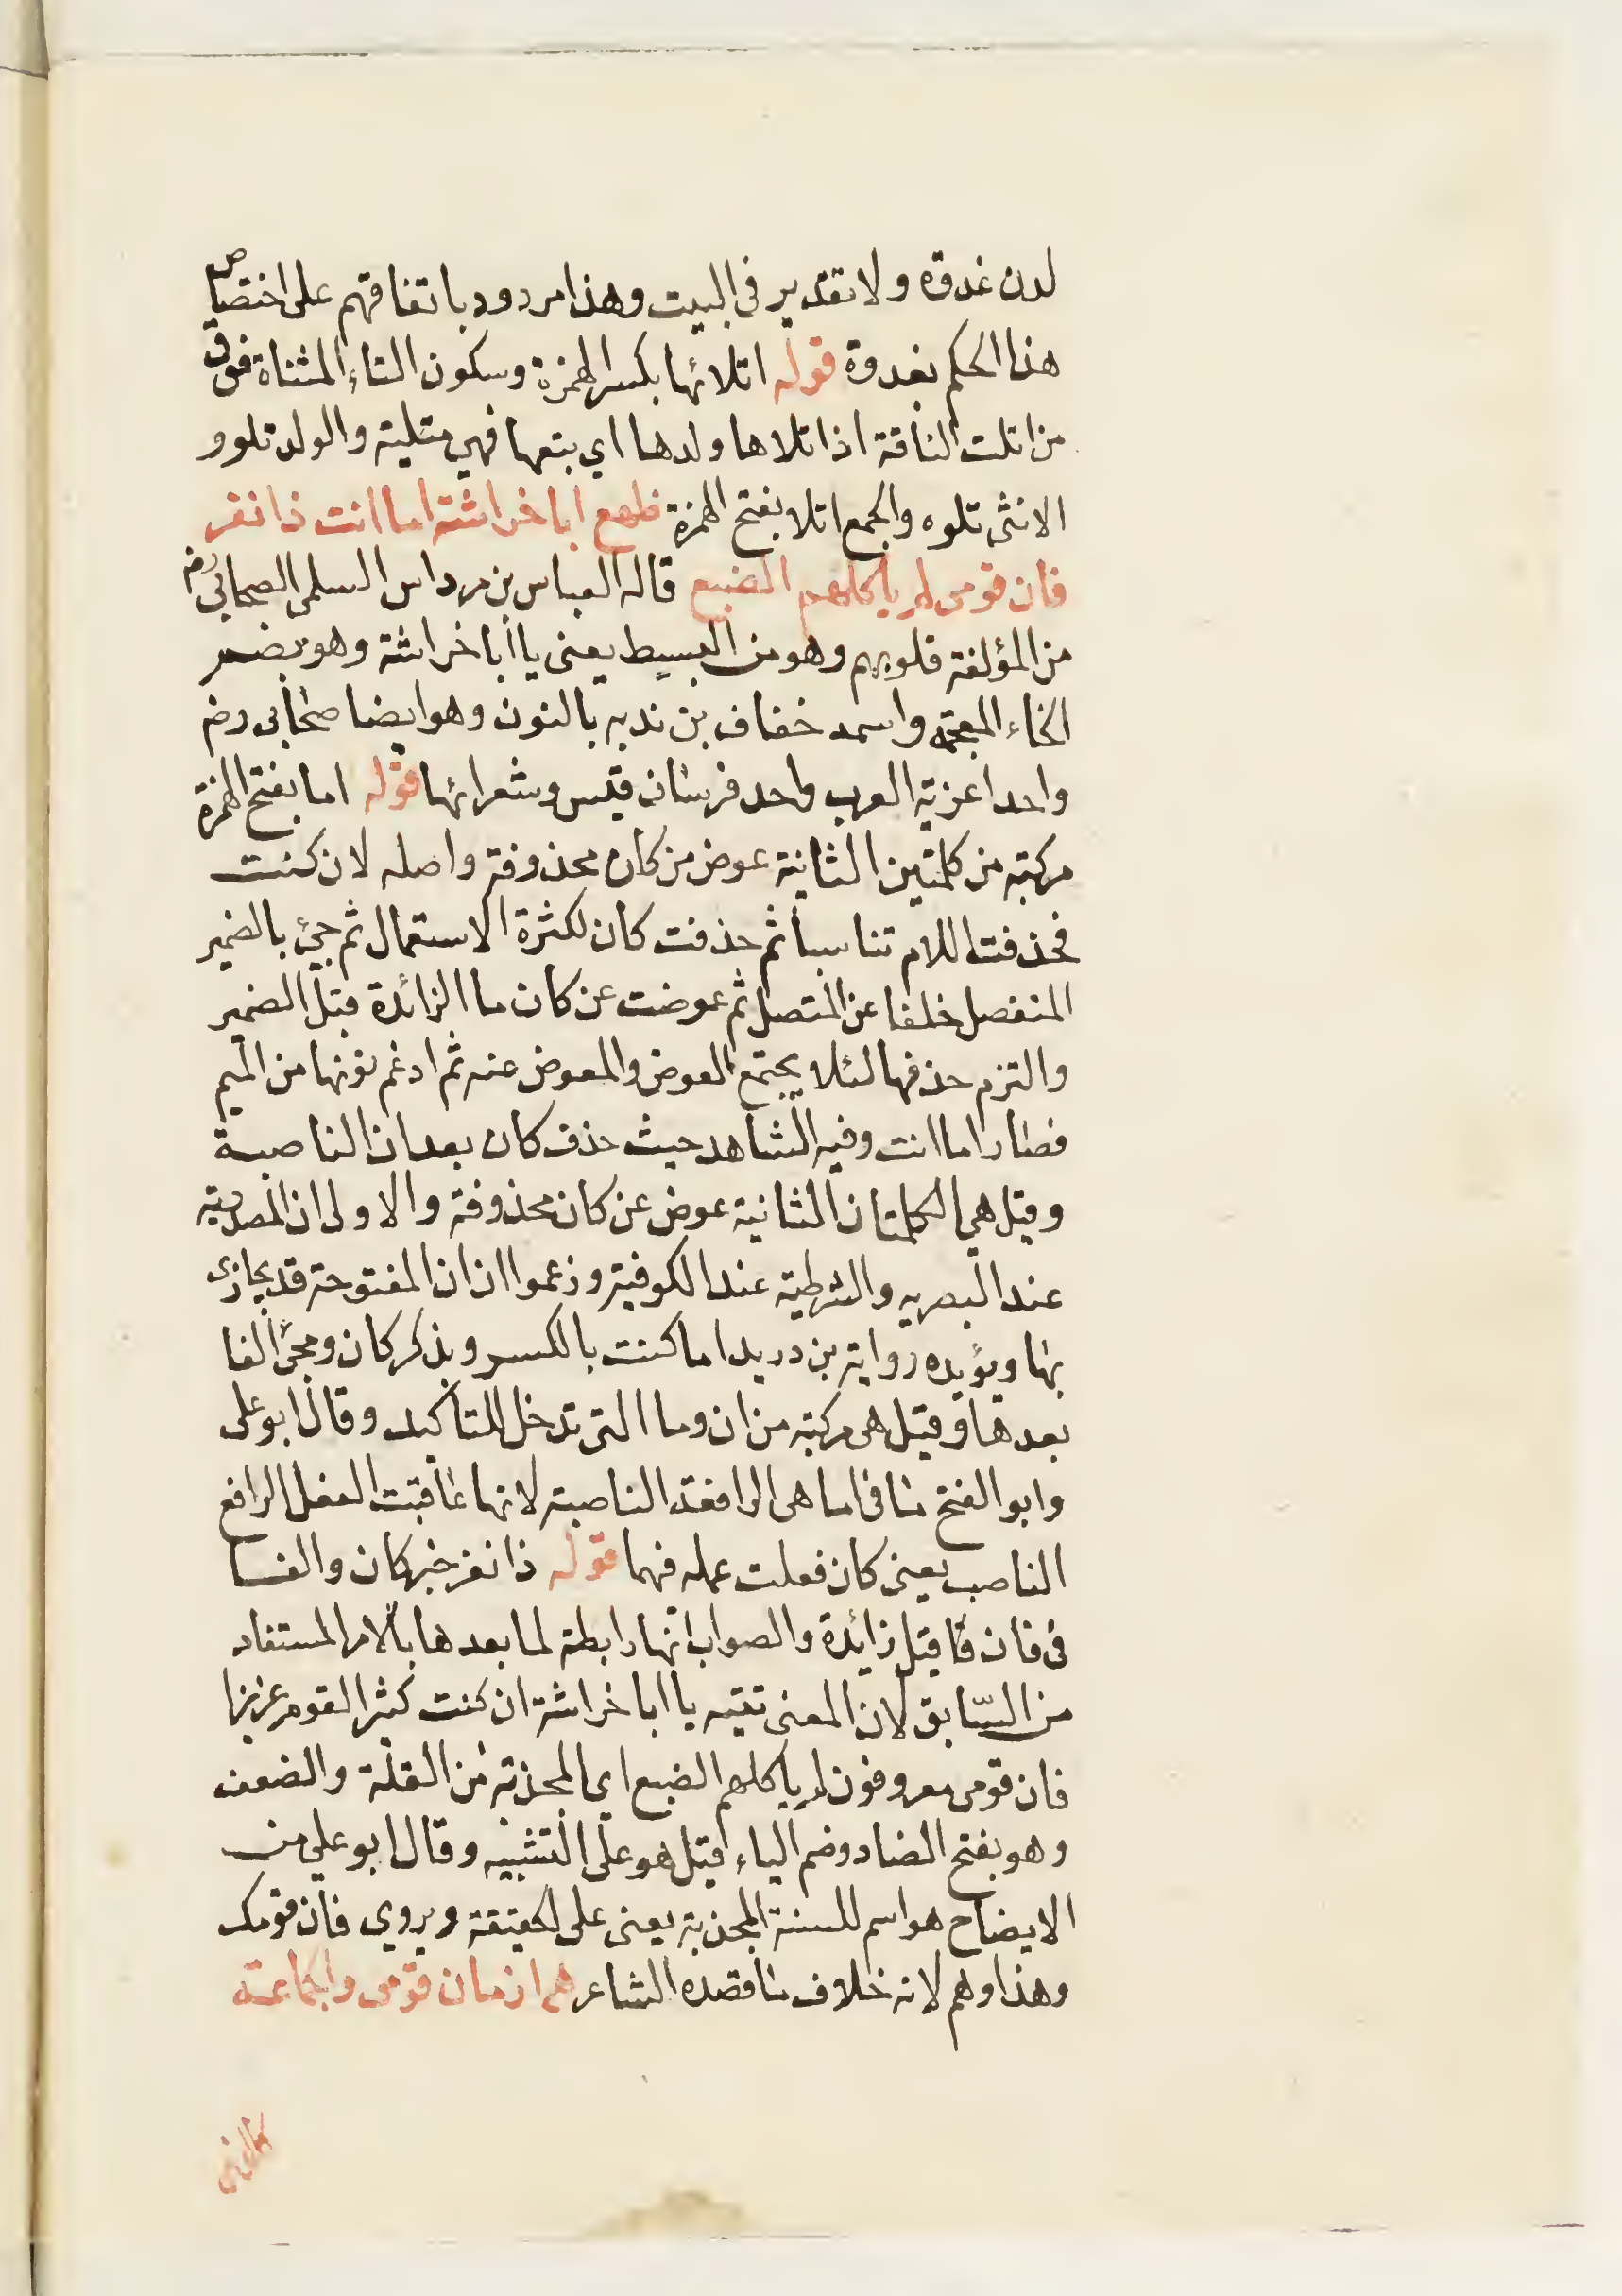 لدن غدوة ولا تقدير في البيت وهذا مردود باتفاقهم على اختصاص
هذا الحكم بغدوة قوله اتلائها بكسر الهمزة وسكون التاء المثناة فوق
من اتلت الناقة اذا تلاها ولدها اي يتبعها فهي متلية والولد تلو و
الانثى تلوه والجمع اتلا بفتح الهمزة ظهع ابا خراشة اما انت ذا نفر
فان قومي لم ياكلهم الضبع قاله العباس بن مرداس السلمي الصحابي رض
من المؤلفة قلوبهم وهو من البسيط يعنى يا أبا خراشة وهو بضم
الخاء المعجمه واسمه خفاف بن ندبه بالنون وهو ايضا صحابي رض
واحد اغربة العرب واحد فرسان قيس وشعرائها قوله اما بفتح الهمزة
مركبة من كلمتين الثانية عوض من كان محذوفة واصله لان كنت
فحذفت اللام تناسبا ثم حذفت كان لكثرة الاستعمال ثم جئ بالضمير
المنفصل خلفا عن المتصل ثم عوضت عن كان ما الزائدة قبل الضمير
والتزم حذفها لئلا يجتمع العوض والمعوض عنه ثم ادغم نونها من الميم
فصار اما انت وفيه الشاهد حيث حذف كان بعد ان الناصبة
وقيل هي الكلمتان الثانية عوض عن كان محذوفة والاولى ان المصدرية
عند البصريه والشرطية عند الكوفية وزعموا ان ان المفتوحة قد يجازى
بها ويؤيده رواية بن دريد اما كنت بالكسر وبذكر كان ومجئ الفا
بعدها وقيل هي مركبة من ان وما التي تدخل للتاكيد وقال ابو على
وابو الفتح ما في اما هي الرافعة الناصبة لانها عاقبت الفعل الرافع
الناصب يعني كان فعلت عمله فيهما قوله ذا نفر خبر كان والفا
في فان قا قيل زائدة والصواب انها رابطة لما بعدها بالامر المستفاد
من السّابق لان المعنى تنبه يا ابا خراشة ان كنت كثير القوم عزيزا
فان قومي معروفون لم ياكلهم الضبع اي المجذبة من القلة والضعف
وهو بفتح الضاد وضم الباء قيل هو على التشبيه وقال ابو علي من
الايضاح هو اسم للسنة المجذبة يعنى على الحقيقة ويروي فان قومك
وهذا وهم لانه خلاف ما قصده الشاعر هع ازمان قومى والجماعة
كالذي